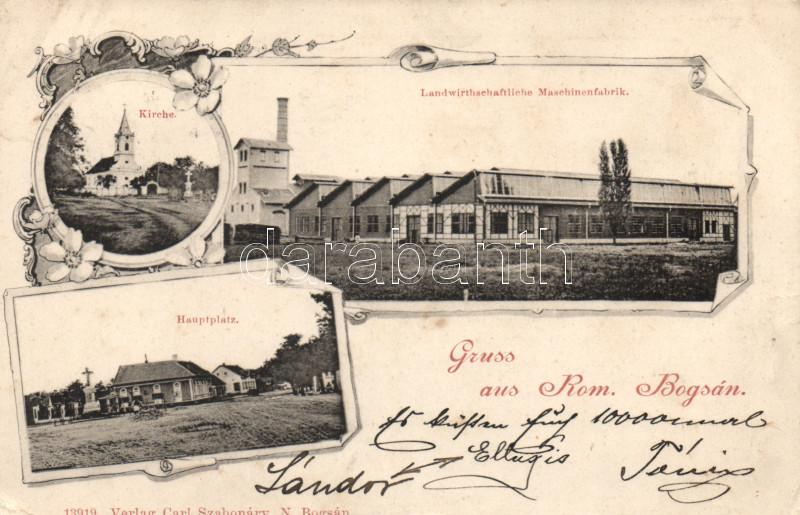 Kirche.
Landwirthschaftliche Maschinenfabrik.
darabanth
Hauptplatz.
Gruss
aus Rom. Bogsán.
Es küssen Euch 10000mal
Sándor
13919 Verlag Carl Szabonáry, N. Bogsán